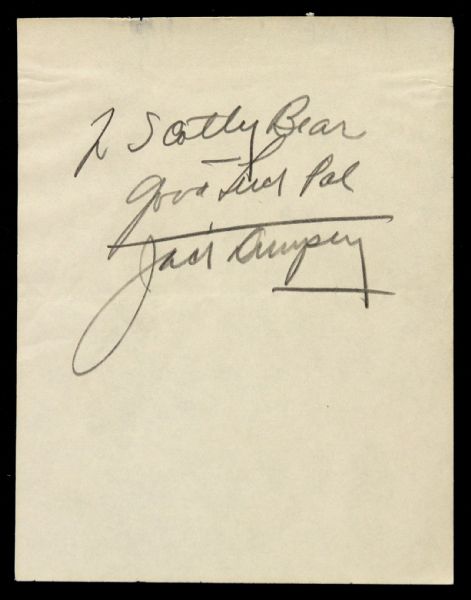 To Scotty Bear
Good Luck Pal
Jack Dempsey